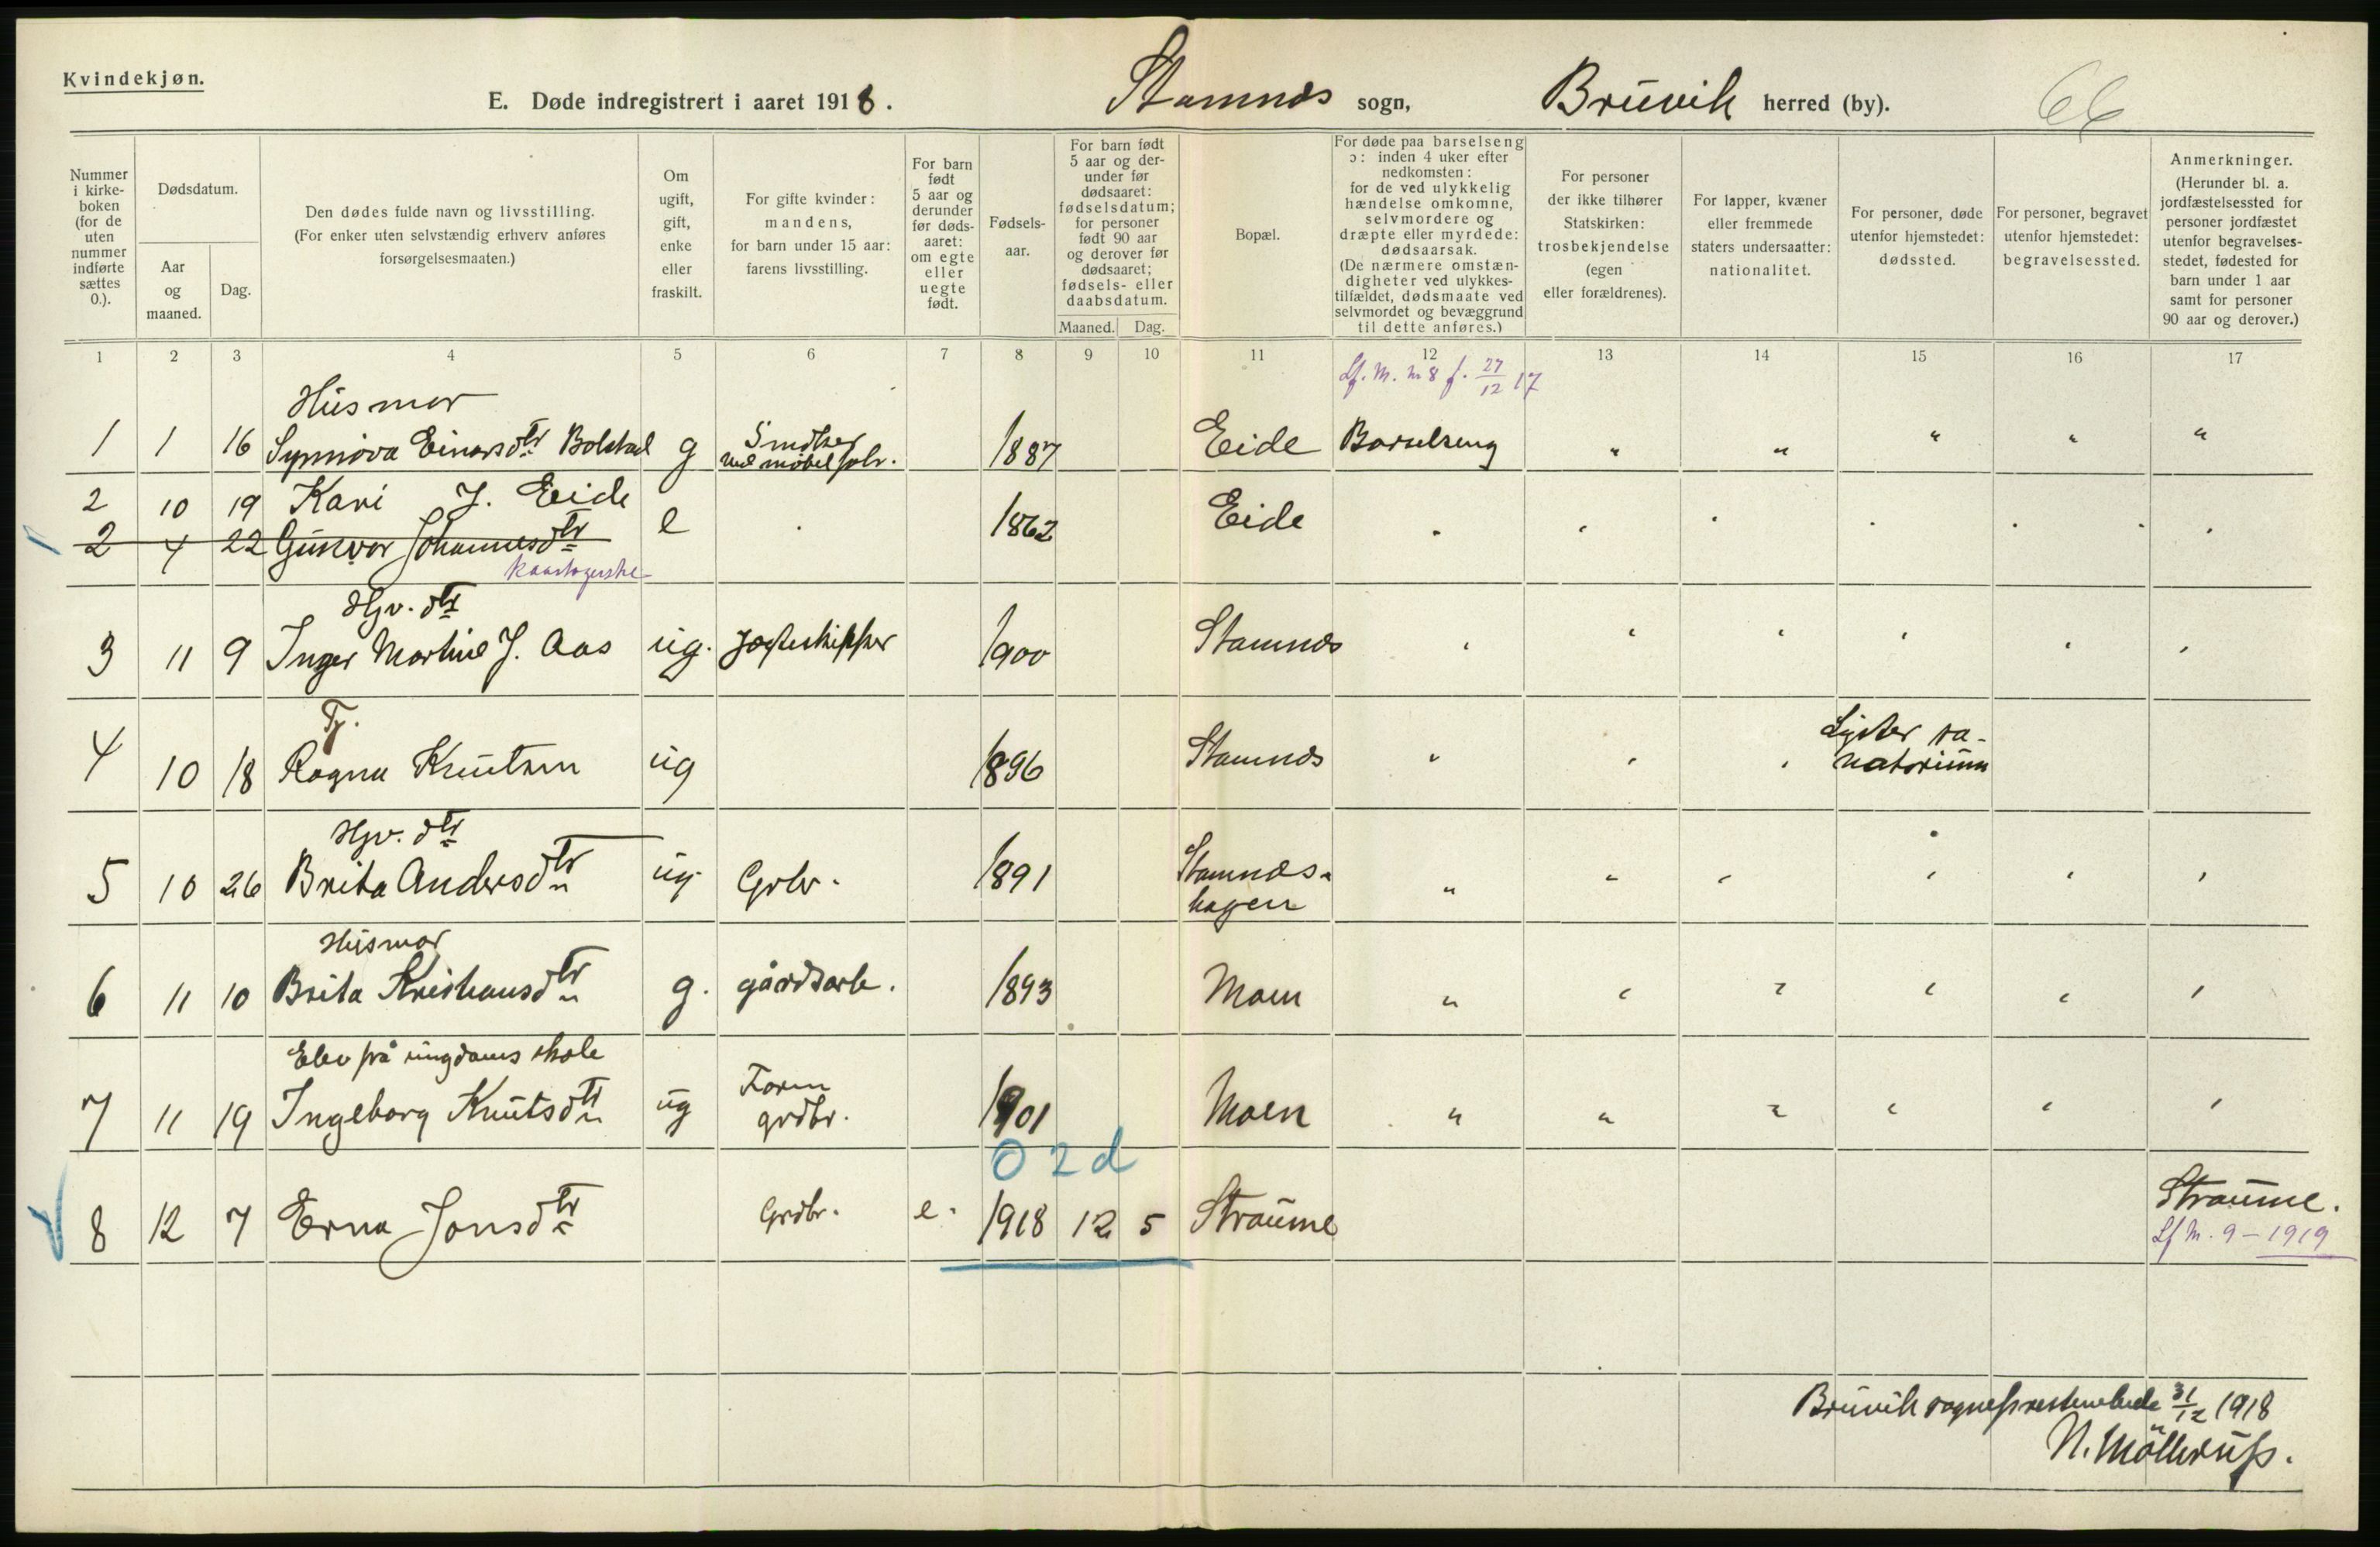 Kvindekjøn.
E. Døde indregistrert i aaret 1918. Stamnes sogn, Bruvik herred (by). 66
Nummer i kirkeboken (for de uten nummer indførte sættes 0.).
Dødsdatum.
Aar og maaned.
Dag.
Den dødes fulde navn og livsstilling. (For enker uten selvstændig erhverv anføres forsørgelsesmaaten.)
Om ugift, gift, enke eller fraskilt.
For gifte kvinder: mandens, for barn under 15 aar: farens livsstilling.
For barn født 5 aar og derunder før dødsaaret: om egte eller uegte født.
Fødselsaar.
For barn født 5 aar og derunder før dødsaaret: fødselsdatum; for personer født 90 aar og derover før dødsaaret; fødsels- eller daabsdatum.
Maaned. Dag.
Bopæl.
For døde paa barselseng ɔ: inden 4 uker efter nedkomsten: for de ved ulykkelig hændelse omkomne, selvmordere og dræpte eller myrdede: dødsaarsak. (De nærmere omstændigheter ved ulykkestilfældet, dødsmaate ved selvmordet og bevæggrund til dette anføres.)
For personer der ikke tilhører Statskirken: trosbekjendelse (egen eller forældrenes).
For lapper, kvæner eller fremmede staters undersaatter: nationalitet.
For personer, døde utenfor hjemstedet: dødssted.
For personer, begravet utenfor hjemstedet: begravelsessted.
Anmerkninger. (Herunder bl. a. jordfæstelsessted for personer jordfæstet utenfor begravelsesstedet, fødested for barn under 1 aar samt for personer 90 aar og derover.)
1 2 3 4 5 6 7 8 9 10 11 12 13 14 15 16 17
Lf. M. n 8 f. 27/12 17
Husmor
1 1 16 Synnøva Einarsdtr Bolstad g Snedker ved møbelfabr. 1887 Eide Barselseng „ „ „ „ „
2 10 19 Kari J. Eide e 1862 Eide
2 4 22 Gunvor Johannesdtr
Hjv. dtr
3 11 9 Inger Martine J. Aas ug. jægteskipper 1900 Stamnes
Tj.
4 10 18 Ragna Knutsen ug 1896 Stamnes Lyster sanatorium
Hjv. dtr
5 10 26 Brita Andersdtr ug Grbr. 1891 Stamneshagen
Husmor
6 11 10 Brita Kristiansdtr g. gårdsarb. 1893 Moen
Elev på ungdoms skole
7 11 19 Ingeborg Knutsdtr ug Form grdbr. 1901 Moen
0 2 d
8 12 7 Erna Jonsdtr Grdbr. e. 1918 12 5 Straume Straume.
Lf M. 9 - 1919
Bruvik sogneprestembede 31/12 1918
N. Møllerup.